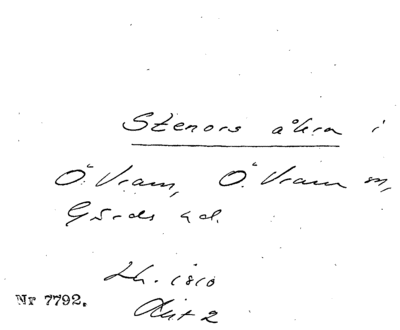 Stenors åkra i
Ö. Vram, Ö. Vram sn,
Gärds hd.
Lh. 1810
Akt 2
Nr 7792.